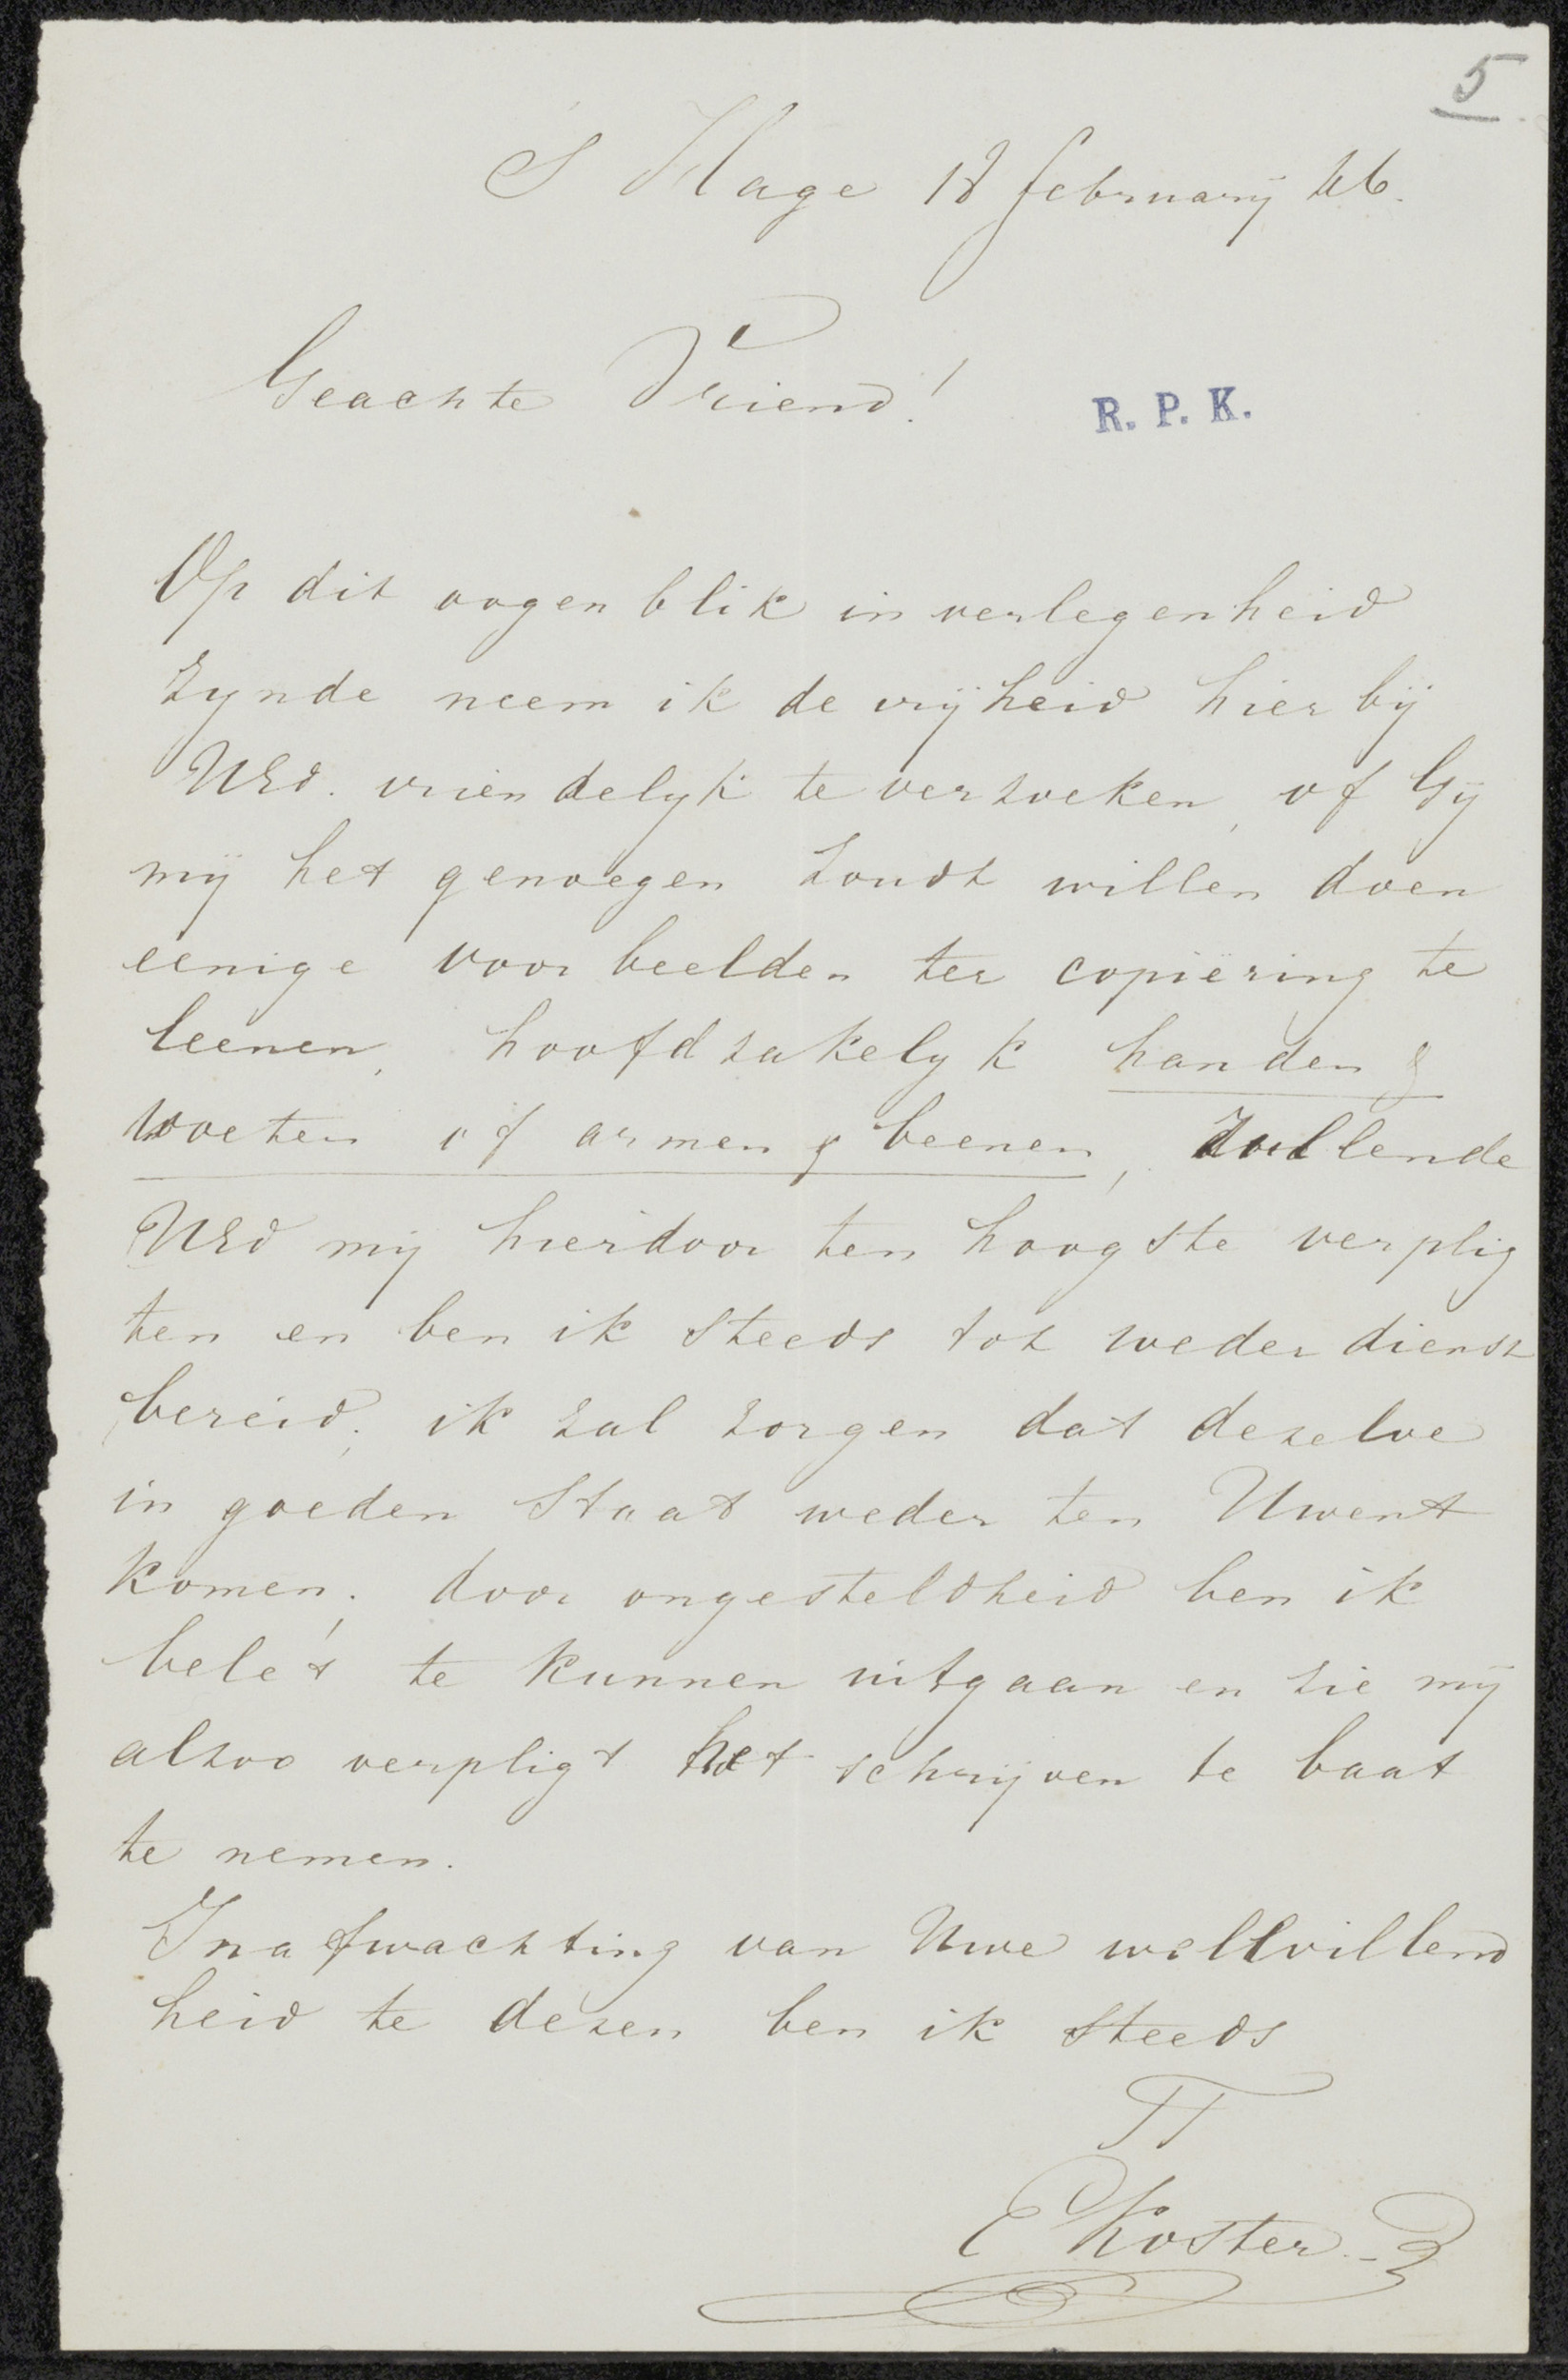 5
S Hage 18 februarij 46.
Geachte Vriend!
R. P. K.
Op dit oogenblik in verlegenheid
zynde neem ik de vrijheid hier bij
UEd. vriendelyk te verzoeken, of Gij
mij het genoegen zoudt willen doen
eenige voorbeelden ter copiëring te
leenen, hoofdzakelyk handen &
voeten of armen & beenen, zullende
UEd mij hierdoor ten hoogste verplig
ten en ben ik steeds tot wederdienst
bereid; ik zal zorgen dat dezelve
in goeden staat weder ten Uwent
komen; door ongesteldheid ben ik
belet te kunnen uitgaan en zie mij
alzoo verpligt het schrijven te baat
te nemen.
In afwachting van Uwe wellwillend
heid te dezen ben ik steeds
TT
E Koster